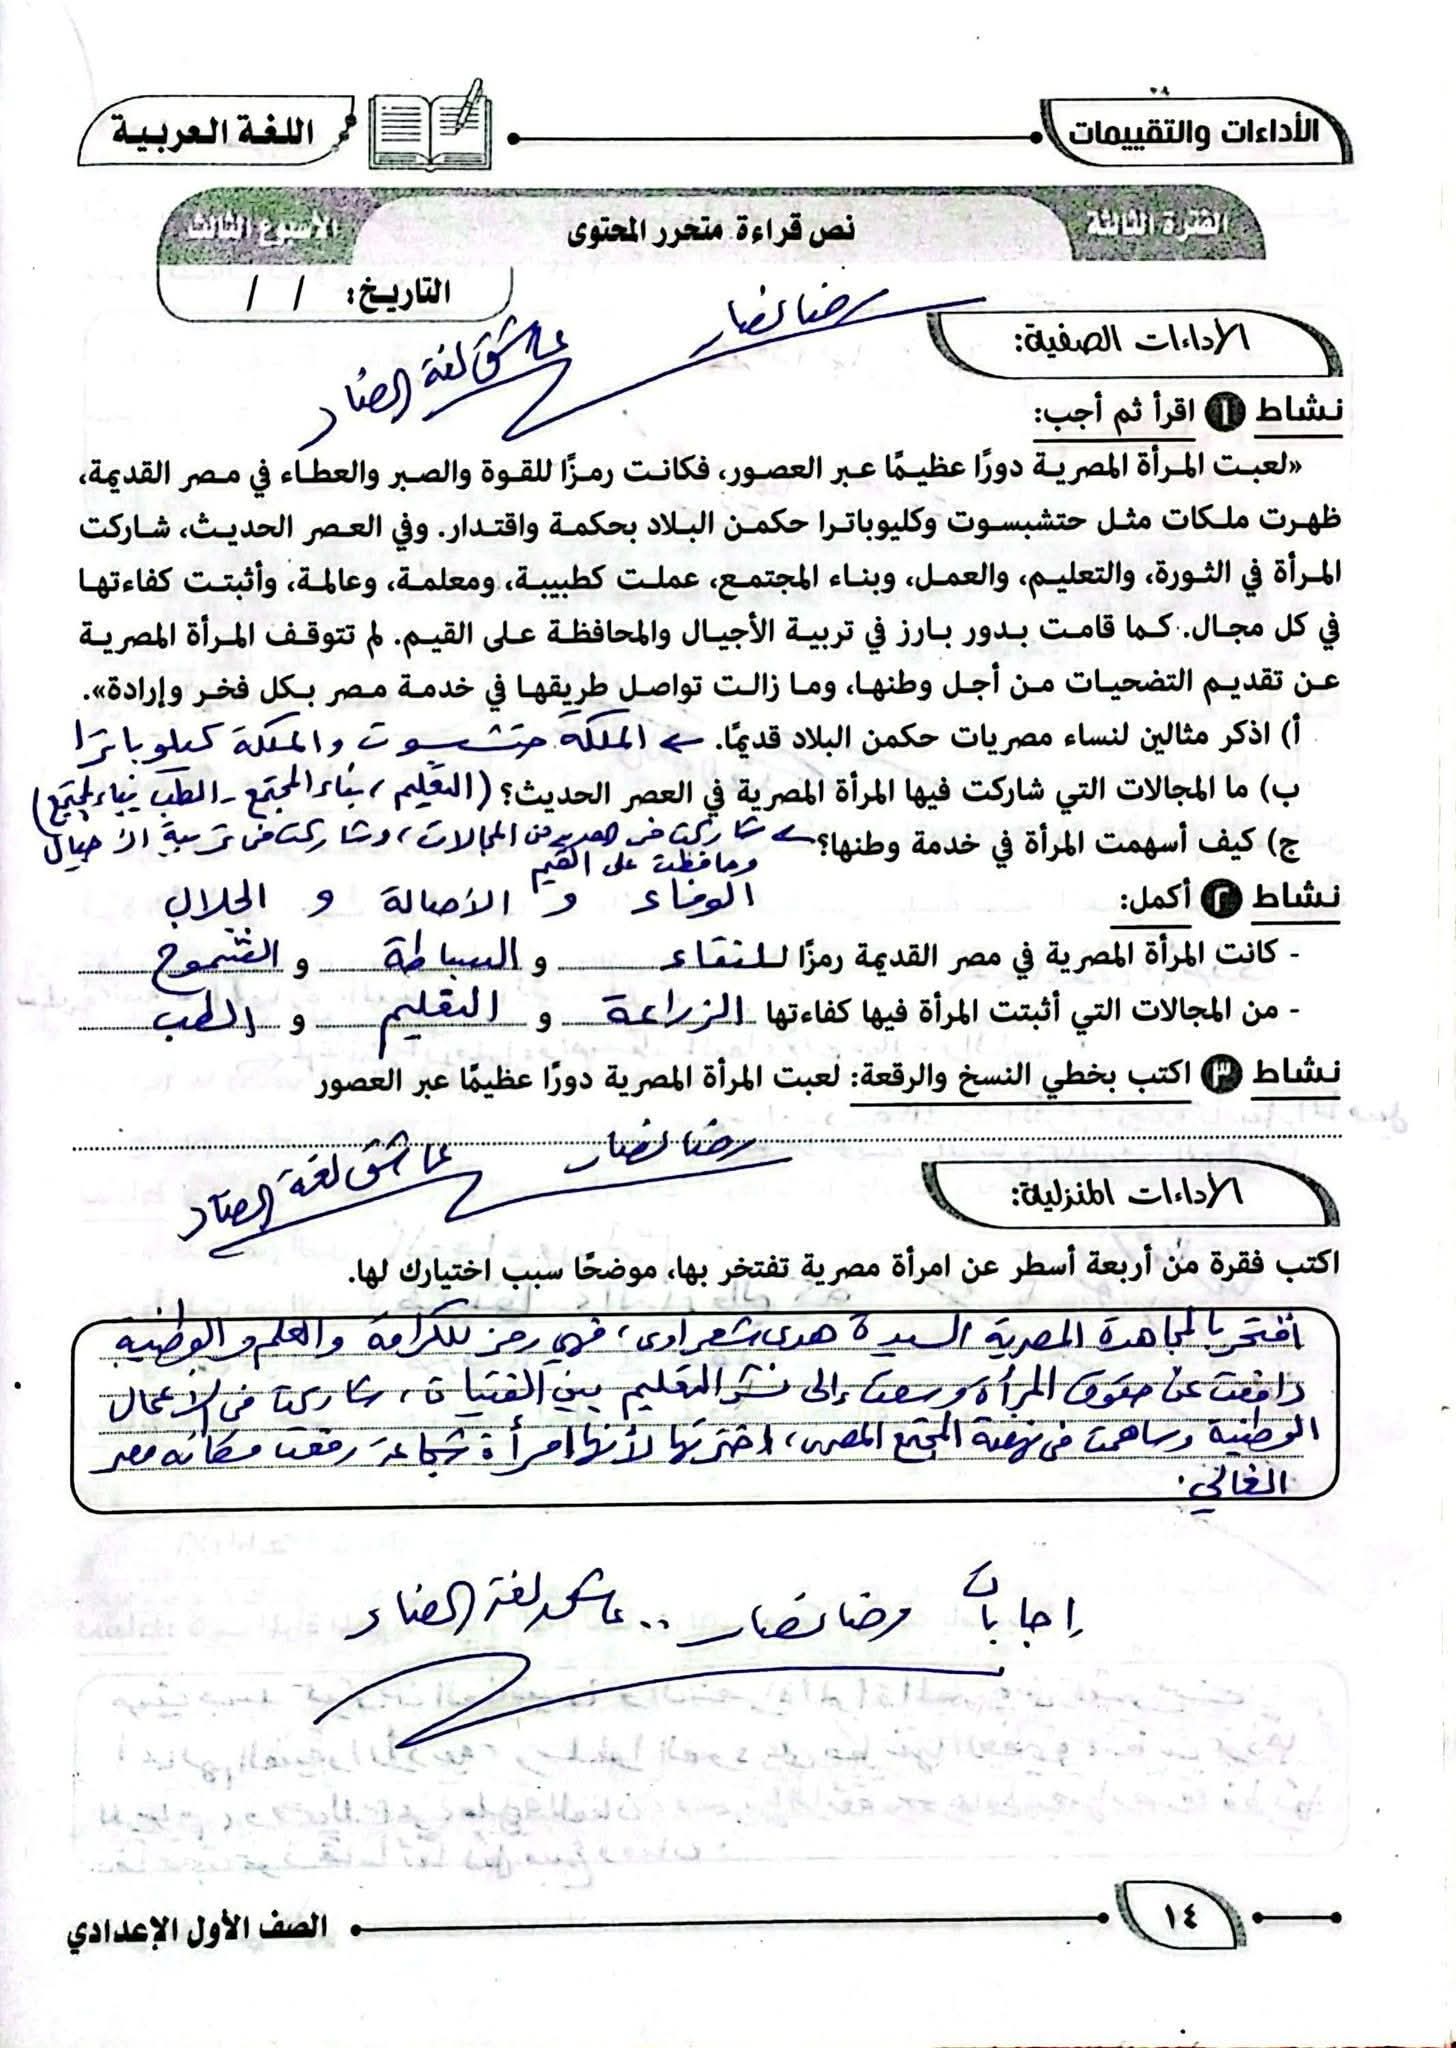 الأداءات والتقييمات
اللغة العربية
الفترة الثالثة
نص قراءة متحرر المحتوى
الأسبوع الثالث
التاريخ: / /
رضا نصار
عاشق لغة الضاد
الأداءات الصفية:
نشاط ١ اقرأ ثم أجب:
«لعبت المرأة المصرية دورًا عظيمًا عبر العصور، فكانت رمزًا للقوة والصبر والعطاء في مصر القديمة،
ظهرت ملكات مثل حتشبسوت وكليوباترا حكمن البلاد بحكمة واقتدار. وفي العصر الحديث، شاركت
المرأة في الثورة، والتعليم، والعمل، وبناء المجتمع، عملت كطبيبة، ومعلمة، وعالمة، وأثبتت كفاءتها
في كل مجال. كما قامت بدور بارز في تربية الأجيال والمحافظة على القيم. لم تتوقف المرأة المصرية
عن تقديم التضحيات من أجل وطنها، وما زالت تواصل طريقها في خدمة مصر بكل فخر وإرادة».
أ) اذكر مثالين لنساء مصريات حكمن البلاد قديمًا. الملكة حتشبسوت والملكة كيلوباترا
ب) ما المجالات التي شاركت فيها المرأة المصرية في العصر الحديث؟ (التعليم، بناء المجتمع - الطب بناء المجتمع)
ج) كيف أسهمت المرأة في خدمة وطنها؟ شاركت فى العديد من المجالات، وشاركت فى تربية الأجيال
وحافظت على القيم
نشاط ٢ أكمل:
الوفاء و الأصالة و الجلال
- كانت المرأة المصرية في مصر القديمة رمزًا للنقاء و البساطة و الشموخ
- من المجالات التي أثبتت المرأة فيها كفاءتها الزراعة و التعليم و الطب
نشاط ٣ اكتب بخطي النسخ والرقعة: لعبت المرأة المصرية دورًا عظيمًا عبر العصور
رضا نصار
عاشق لغة الضاد
الأداءات المنزلية:
اكتب فقرة من أربعة أسطر عن امرأة مصرية تفتخر بها، موضحًا سبب اختيارك لها.
افتخر بالمجاهدة المصرية السيدة هدى شعراوى، فهي رمز للكرامة والعلم والوطنية
دافعت عن حقوق المرأة وسعت إلى نشر التعليم بين الفتيات، شاركت فى الأعمال
الوطنية وساهمت فى نهضة المجتمع المصرى، اخترتها لأنها امرأة شجاعة رفعت مكانه مصر
الغالي.
إجابات رضا نصار .. عاشق لغة الضاد
١٤
الصف الأول الإعدادي